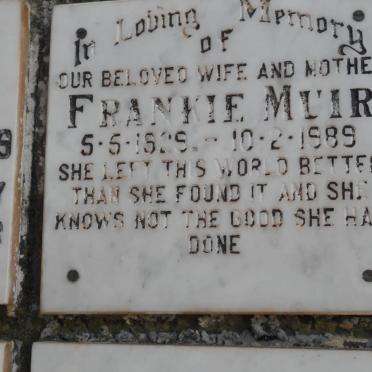 In Loving Memory
of
OUR BELOVED WIFE AND MOTHE
FRANKIE MUIR
5·5·1929 - 10·2·1989
SHE LEFT THIS WORLD BETTE
THAN SHE FOUND IT AND SHE
KNOWS NOT THE GOOD SHE HA
DONE